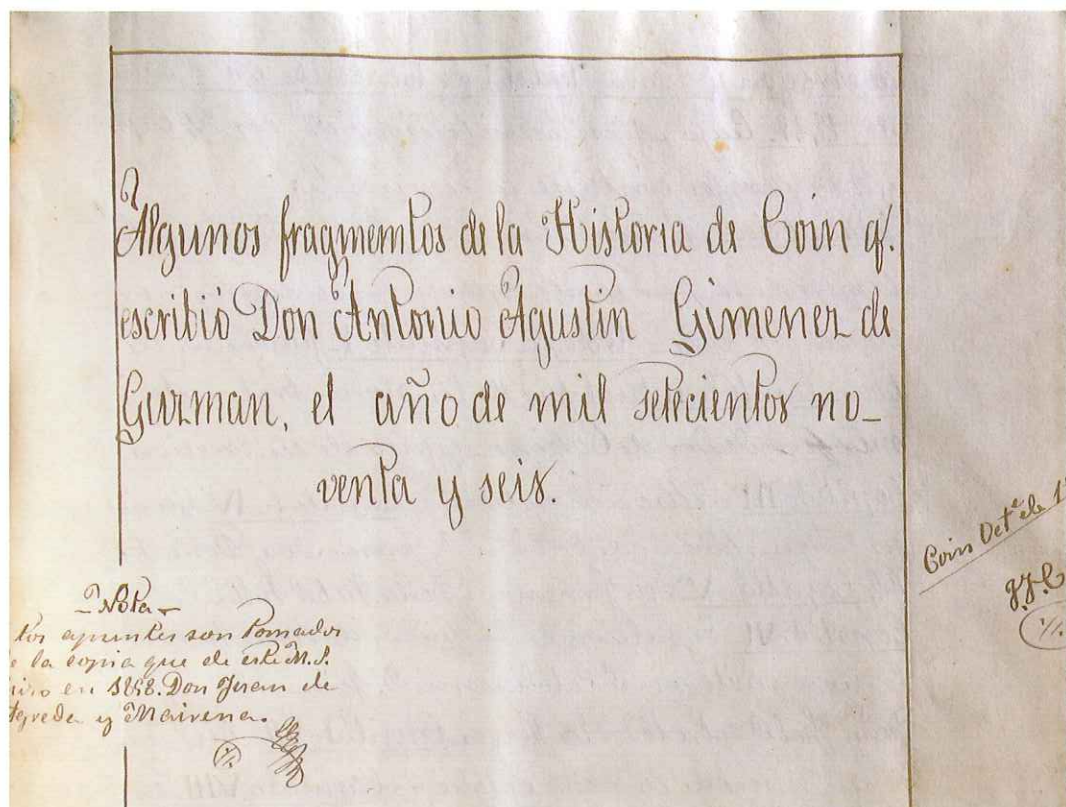 Algunos fragmentos de la Historia de Coin q.
escribió Don Antonio Agustin Gimenez de
Guzman, el año de mil setecientos no_
venta y seis.
Coin Oct.e de 1
J.J.C
Nota
tos apuntes son tomados
la copia que de este M.S.
en 1858. Don Juan de
y Mairena.